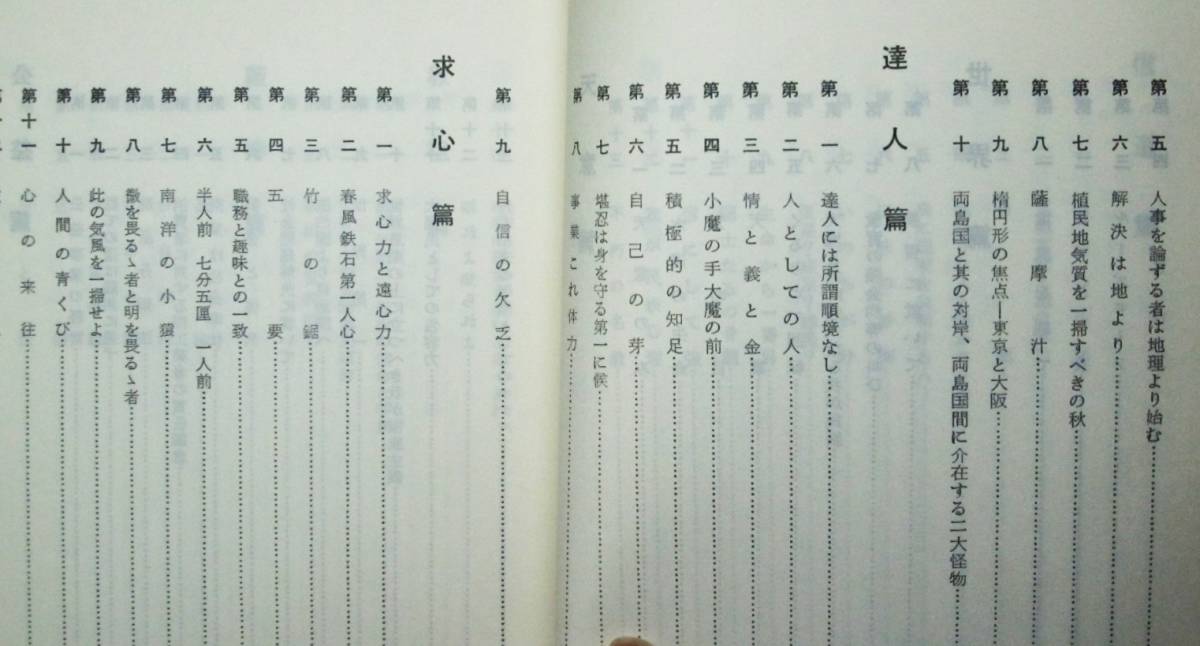 第五 人事を論ずる者は地理より始む
第六 解決は地より
第七 植民地気質を一掃すべきの秋
第八 薩摩汁
第九 楕円形の焦点―東京と大阪
第十 両島国と其の対岸、両島国間に介在する二大怪物
達人篇
第一 達人には所謂順境なし
第二 人としての人
第三 情と義と金
第四 小魔の手大魔の前
第五 積極的の知足
第六 自己の芽
第七 堪忍は身を守る第一に候
第八 事業これ体力
第九 自信の欠乏
求心篇
第一 求心力と遠心力
第二 春風鉄石第一人心
第三 竹の鋸
第四 五要
第五 職務と趣味との一致
第六 半人前 七分五厘 一人前
第七 南洋の小猿
第八 黴を畏るゝ者と明を畏るゝ者
第九 此の気風を一掃せよ
第十 人間の青くび
第十一 心の来往